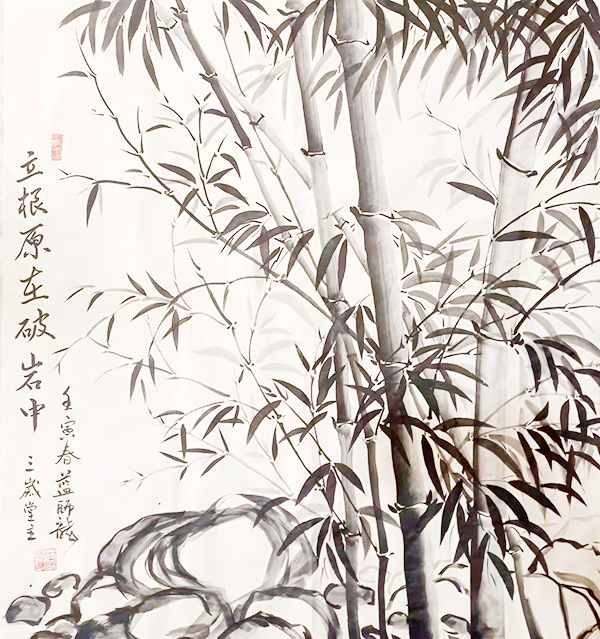 立根原在破岩中
壬寅春蓝師龍
三崴堂主